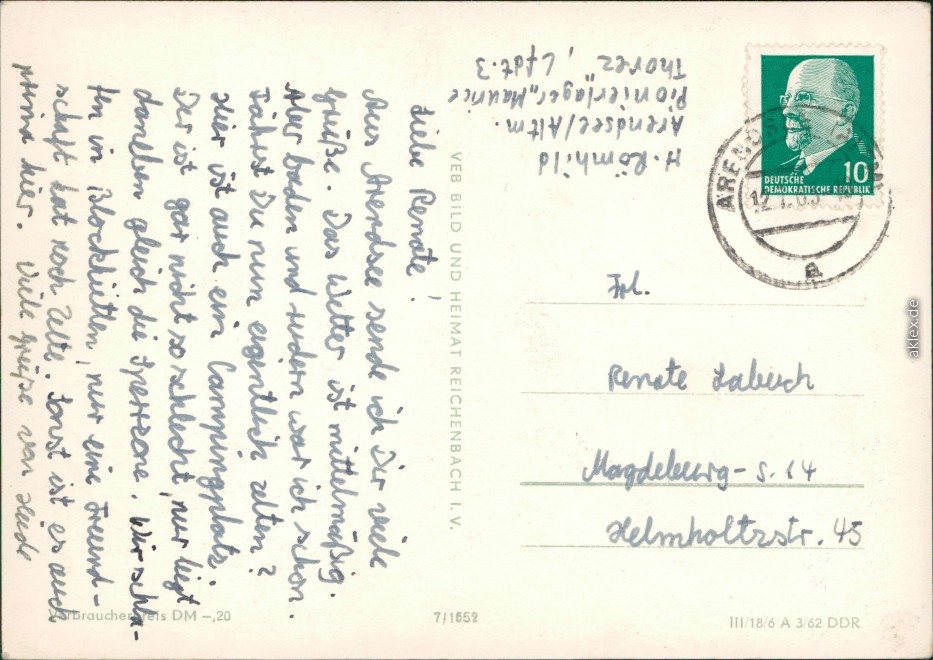 Liebe Renate!
Aus Arendsee sende ich Dir viele
Grüße. Das Wetter ist mittelmäßig.
Aber baden und rudern war ich schon.
Fährst Du nun eigentlich zelten?
Hier ist auch ein Campingplatz.
Der ist gar nicht so schlecht, nur liegt
daneben gleich die Sperrzone. Wir schla-
fen in Blockhütten, nur eine Freund-
schaft hat noch Zelte. Sonst ist es auch
prima hier. Viele Grüße von Heide
H. Römhild
Arendsee/Altm.
Pionierlager "Maurice
Thorez", Lfdt. 3
VEB BILD UND HEIMAT REICHENBACH I. V.
10
DEUTSCHE
DEMOKRATISCHE REPUBLIK
Frl.
Renate Labuch
Magdeburg-S. 14
Helmholtzstr. 45
Verbraucherpreis DM -,20
7/1552
III/18/6 A 3/62 DDR
aklex.de